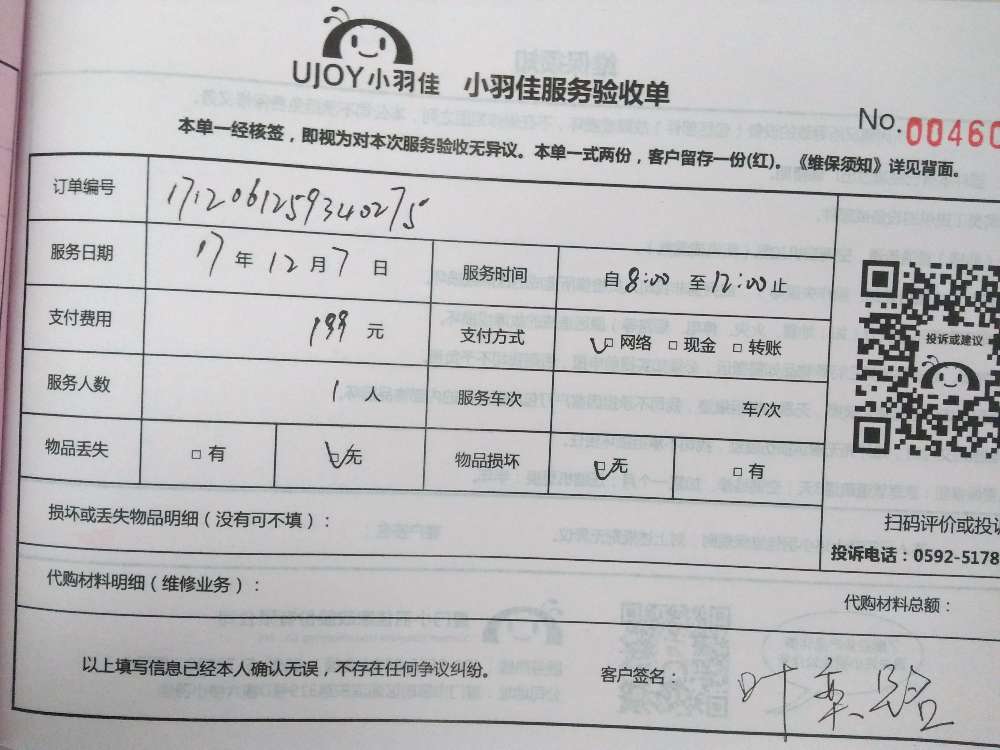 UJOY小羽佳 小羽佳服务验收单
No.00460
本单一经核签，即视为对本次服务验收无异议。本单一式两份，客户留存一份(红)。《维保须知》详见背面。
订单编号 1712061259340275
服务日期 17年12月7日 服务时间 自8:00至12:00止
支付费用 199元 支付方式 网络 现金 转账
投诉或建议
服务人数 1人 服务车次 车/次
物品丢失 有 无 物品损坏 无 有
损坏或丢失物品明细（没有可不填）：
扫码评价或投诉
投诉电话：0592-5178
代购材料明细（维修业务）：
代购材料总额：
以上填写信息已经本人确认无误，不存在任何争议纠纷。 客户签名：叶